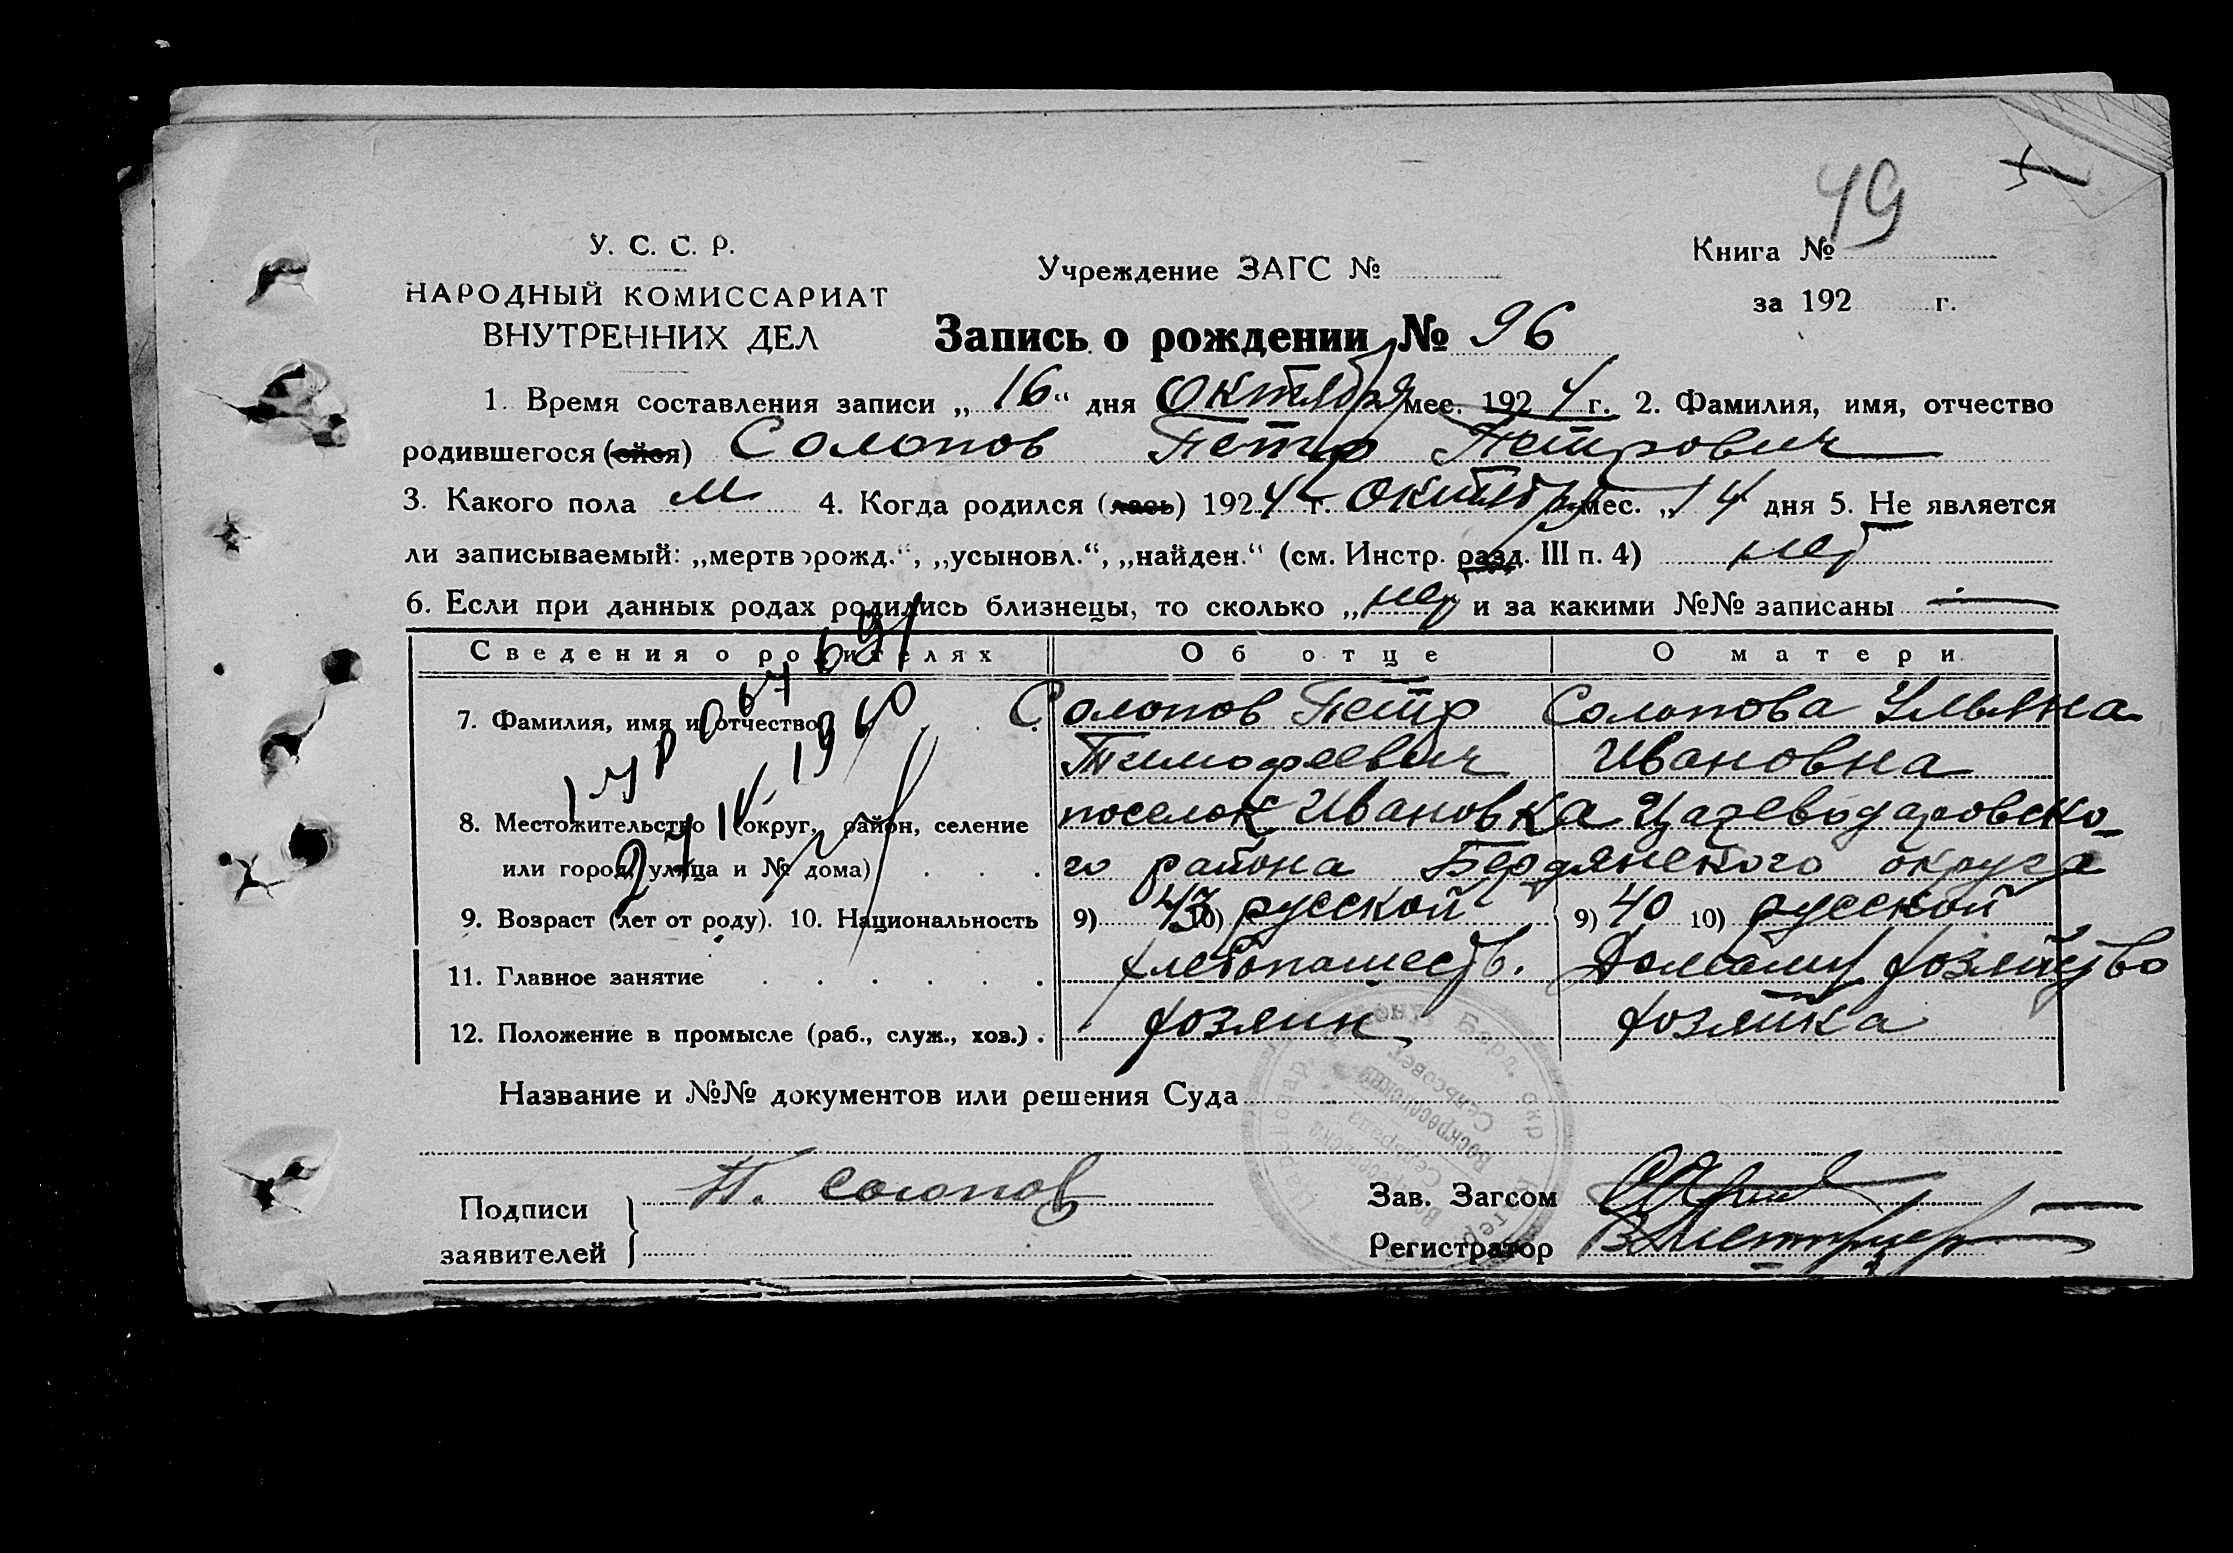 49
У. С. С. Р.
НАРОДНЫЙ КОМИССАРИАТ
ВНУТРЕННИХ ДЕЛ
Учреждение ЗАГС №
Книга №
за 192 г.
Запись о рождении № 96
1. Время составления записи „16“ дня Октября мес. 1924 г. 2. Фамилия, имя, отчество
родившегося (ейся) Солопов Петр Петрович
3. Какого пола м 4. Когда родился (лась) 1924 г. Октября мес. „14 дня 5. Не является
ли записываемый: „мертворожд.“, „усыновл.“, „найден.“ (см. Инстр. разд. III п. 4) нет
6. Если при данных родах родились близнецы, то сколько „нет и за какими №№ записаны —
Сведения о родителях Об отце О матери
7. Фамилия, имя и отчество Солопов Петр Солопова Ульяна
Тимофеевич Ивановна
8. Местожительство (округ, район, селение поселок Ивановка Цареводаровско-
или город, улица и № дома) го района Бердянского округа
9. Возраст (лет от роду). 10. Национальность 9) 43 10) русской 9) 40 10) русской
11. Главное занятие хлебопашеств. Домашн хозяйство
12. Положение в промысле (раб., служ., хоз.) хозяин хозяйка
Название и №№ документов или решения Суда
Подписи
заявителей
П. Солопов
Зав. Загсом
Регистратор